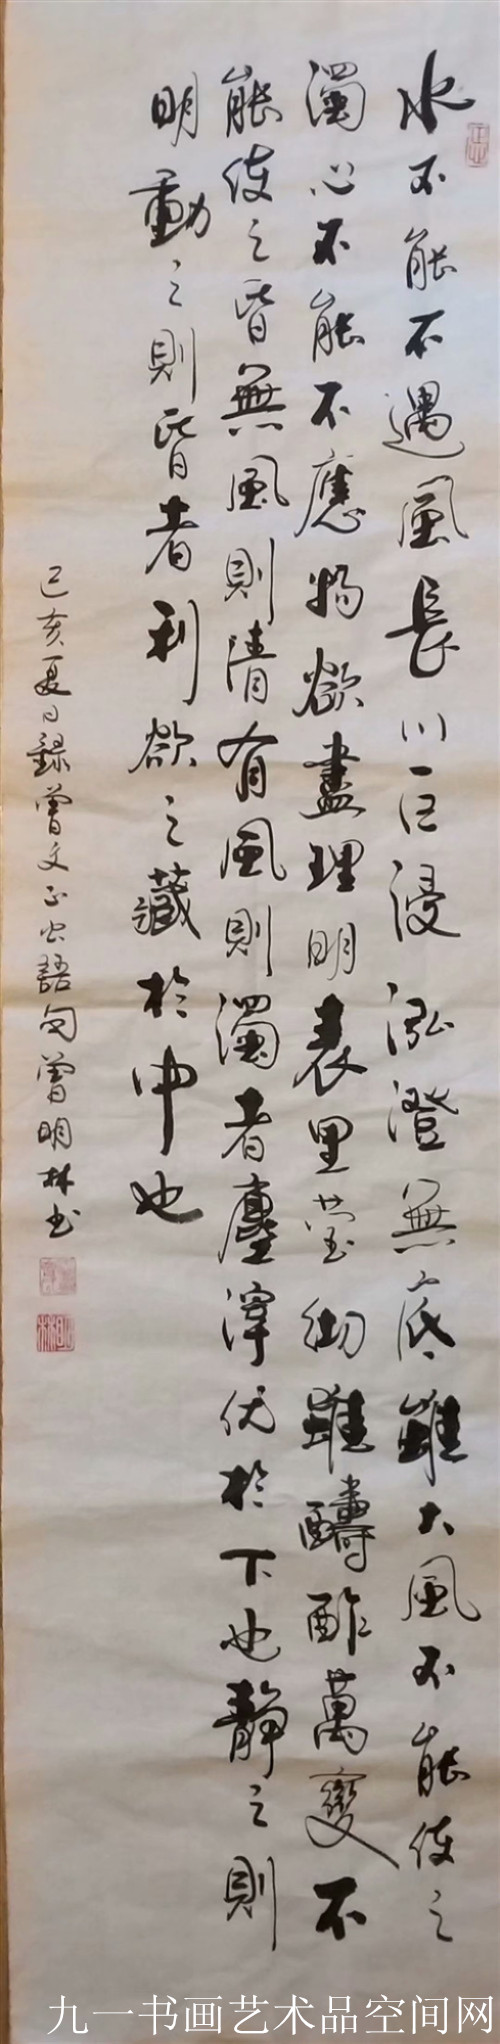 水不能不遇風長川巨浸泓澄無底雖大風不能使之
濁心不能不應物欲盡理明表里瑩徹雖酬酢萬變不
能使之昏無風則清有風則濁者塵滓伏於下也靜之則
明動之則昏者利欲之藏於中也
己亥夏日錄曾文正公語句曾明林书
九一书画艺术品空间网